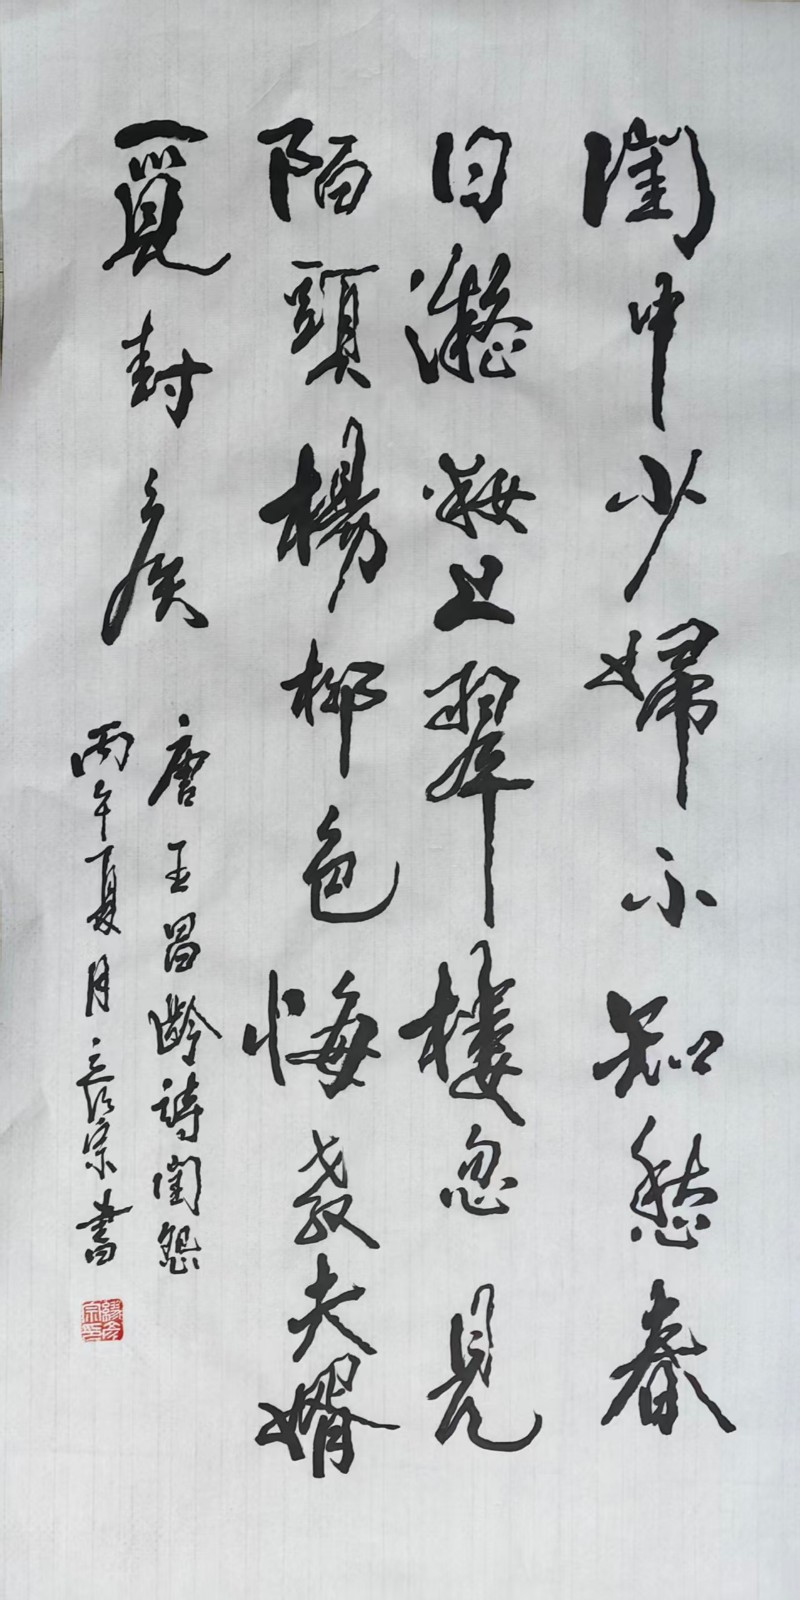 閨中少婦不知愁春
日凝妝上翠樓忽見
陌頭楊柳色悔教夫婿
覓封侯
唐王昌齡詩閨怨
丙午夏月彥宗書